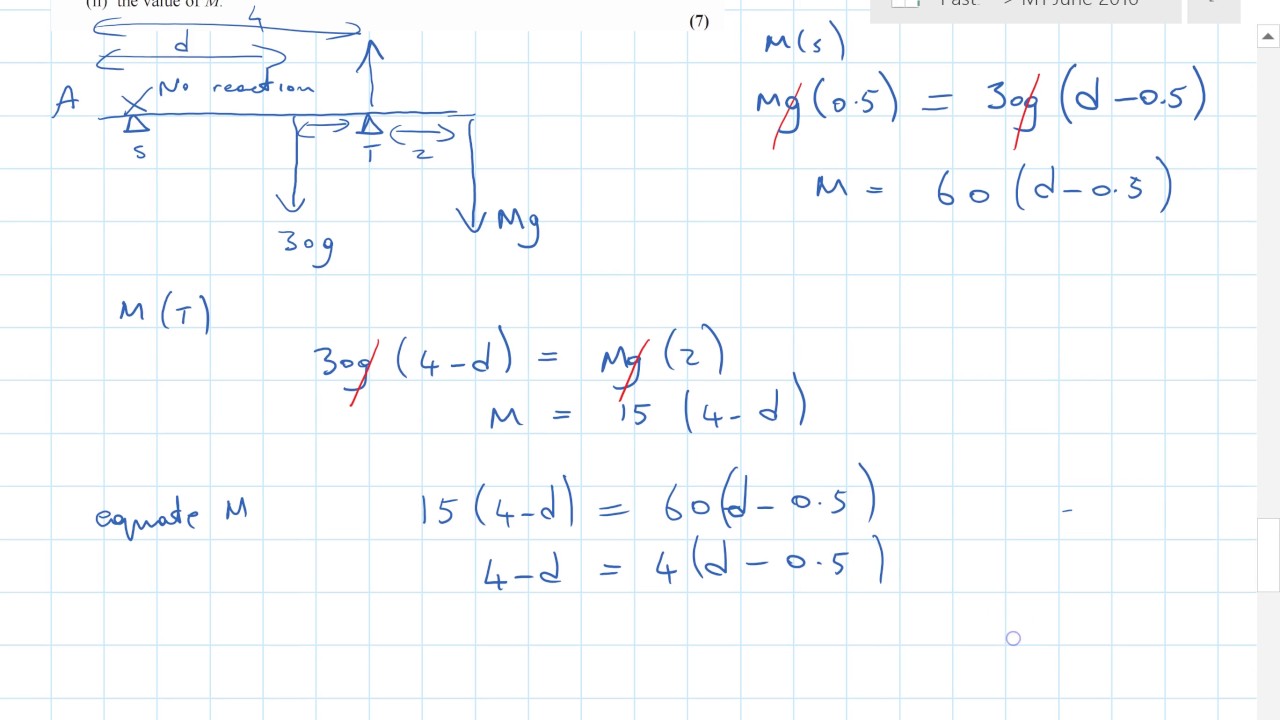 (ii) the value of M.
(7)
Past -> M1 June 2016
4
d
A No reaction
S T 2
30g
Mg
M(s)
Mg(0.5) = 30g(d-0.5)
M = 60(d-0.5)
M(T)
30g(4-d) = Mg(2)
M = 15(4-d)
equate M 15(4-d) = 60(d-0.5)
4-d = 4(d-0.5)